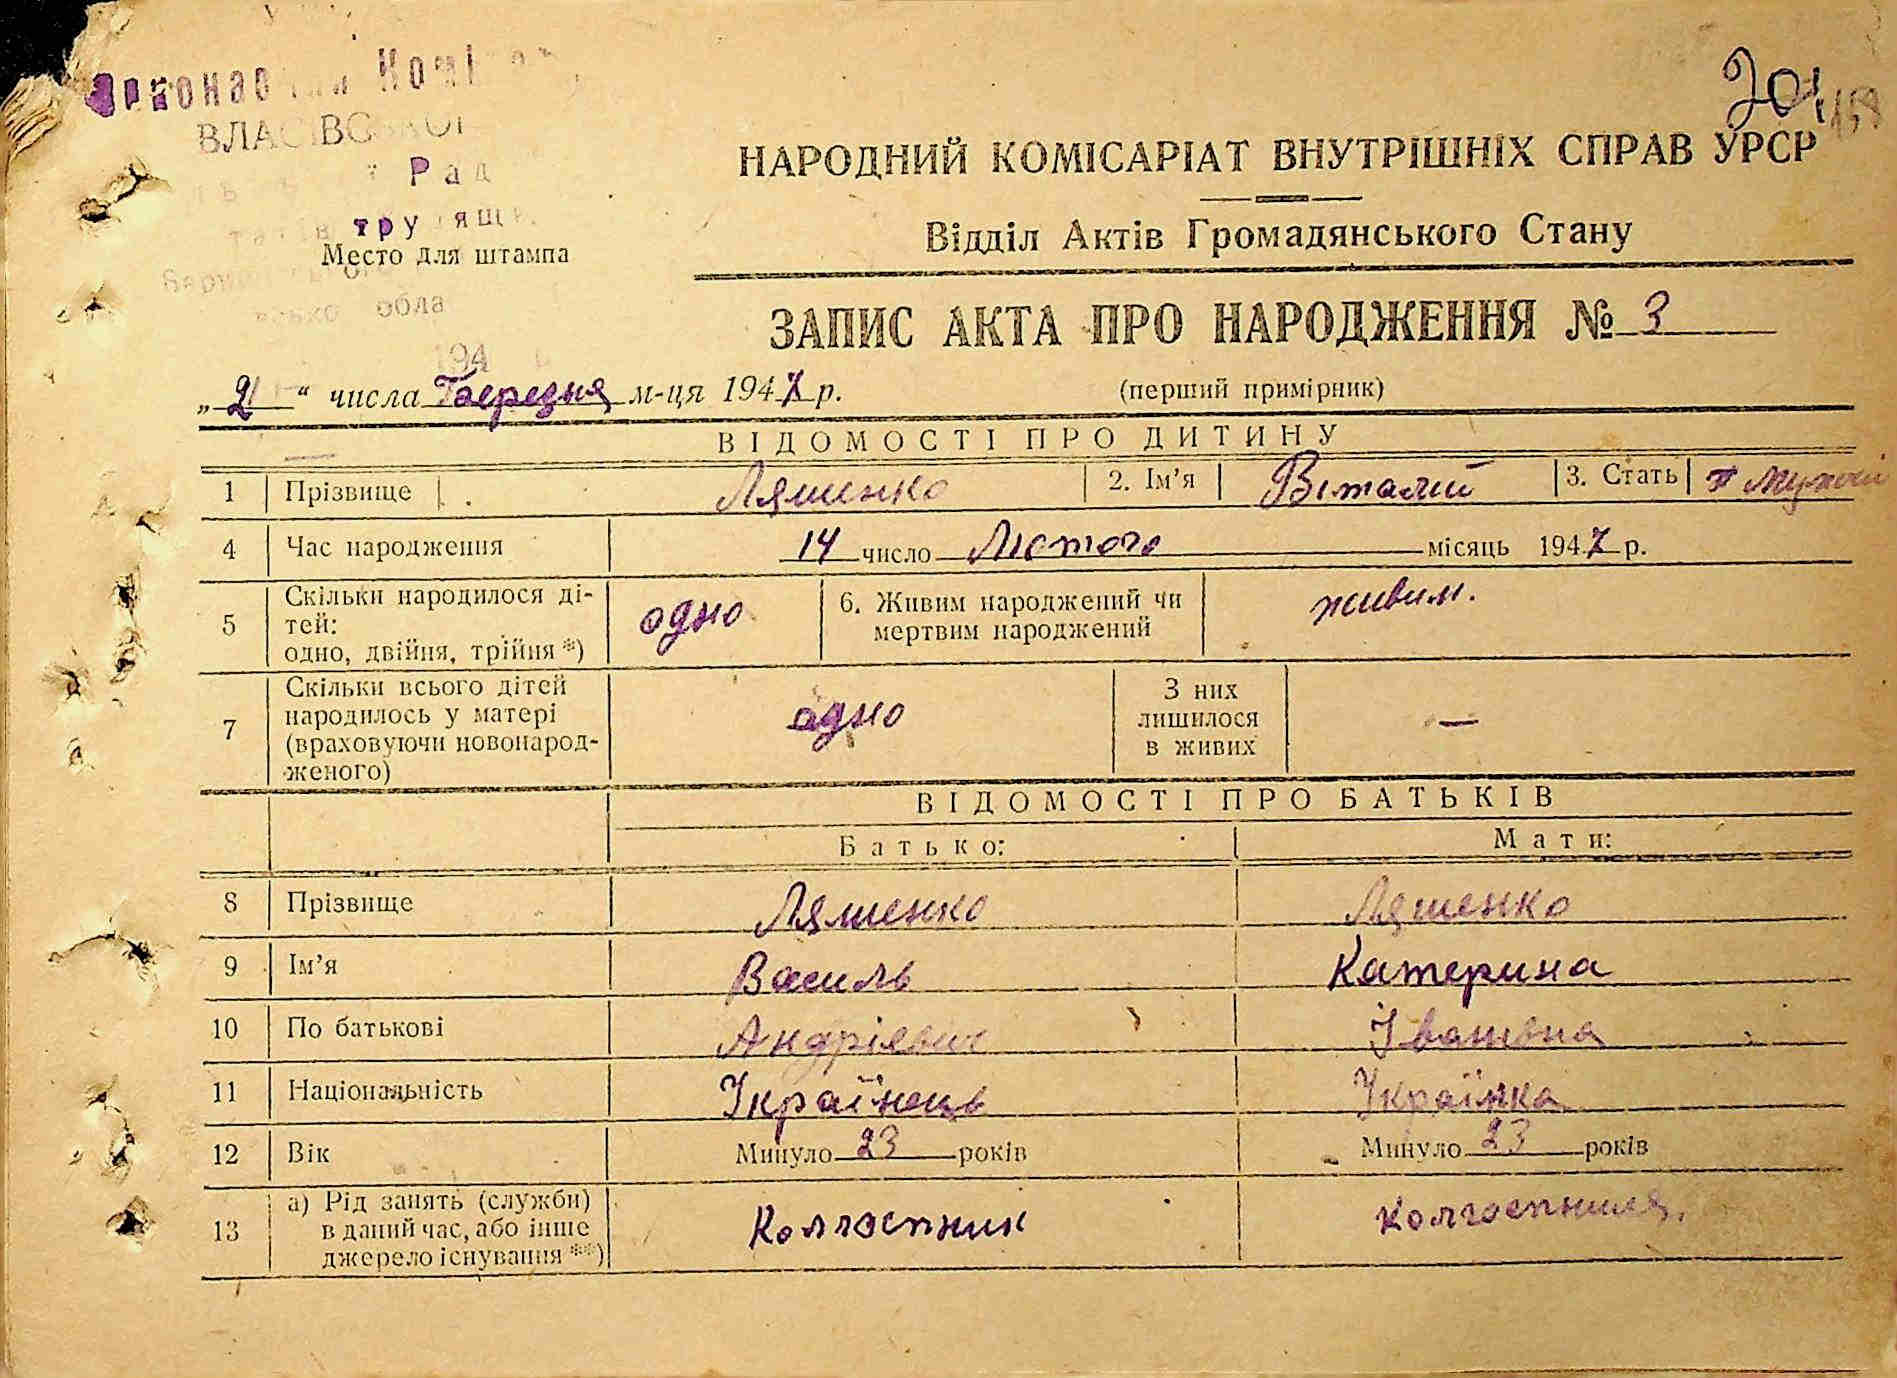 ВЛАСІВСЬКОЇ
Рад
Место для штампа
НАРОДНИЙ КОМІСАРІАТ ВНУТРІШНІХ СПРАВ УРСР
Відділ Актів Громадянського Стану
ЗАПИС АКТА ПРО НАРОДЖЕННЯ № 3
„ 2 “ числа Березня м-ця 1947 р. (перший примірник)
ВІДОМОСТІ ПРО ДИТИНУ
1 Прізвище Ляшенко 2. Ім'я Віталий 3. Стать
4 Час народження 14 число Лютого місяць 1947 р.
5 Скільки народилося ді-
тей:
одно, двійня, трійня *) одно 6. Живим народжений чи
мертвим народжений живим.
7 Скільки всього дітей
народилось у матері
(враховуючи новонарод-
женого) одно З них
лишилося
в живих —
ВІДОМОСТІ ПРО БАТЬКІВ
Батько: Мати:
8 Прізвище Ляшенко Ляшенко
9 Ім'я Василь Катерина
10 По батькові Андрієвич Івановна
11 Національність Українець Українка
12 Вік Минуло 23 років Минуло 23 років
13 а) Рід занять (служби)
в даний час, або інше
джерело існування **) Колгоспник колгоспниця.